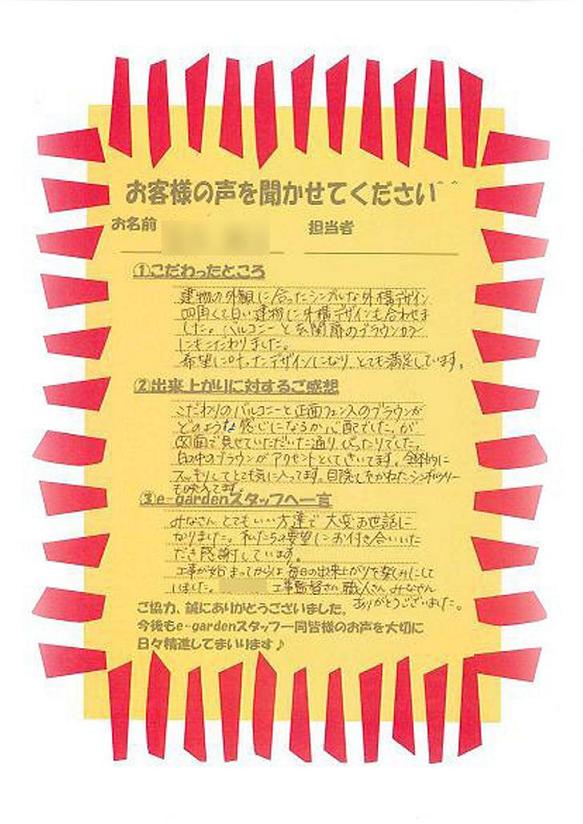 お客様の声を聞かせてください^^
お名前
担当者
①こだわったところ
建物の外観に合ったシンプルな外構デザイン
四角くて白い建物に外構デザインも合わせま
した。バルコニーと玄関扉のブラウンカラー
にもこだわりました。
希望に叶ったデザインになり、とても満足しています。
②出来上がりに対するご感想
こだわりのバルコニーと正面フェンスのブラウンが
どのような感じになるか心配でした。が
図面で見せていただいた通り、ぴったりでした。
白の中のブラウンがアクセントとしてきいてます。全体的に
スッキリしてとても気に入ってます。目隠しをかねたシンボルツリー
も映えてます。
③e-gardenスタッフへ一言
みなさん とてもいい方達で 大変お世話に
なりました。私たちの要望にお付き合いいた
だき感謝しています。
工事が始まってからは毎日の出来上がりを楽しみにして
いました。工事監督さん、職人さん、みなさん
ありがとうございました。
ご協力、誠にありがとうございました。
今後もe-gardenスタッフ一同皆様のお声を大切に
日々精進してまいります♪